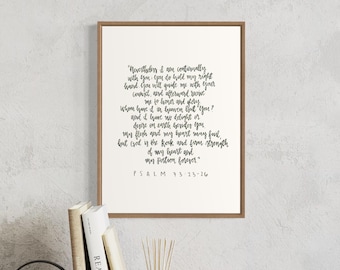 "Nevertheless I am continually
with You; You do hold my right
hand. You will guide me with Your
counsel, and afterward receive
me to honor and glory.
Whom have I in heaven but You?
And I have no delight or
desire on earth besides You.
My flesh and my heart may fail,
but God is the Rock and firm strength
of my heart and
my portion forever."
PSALM 73:23-26